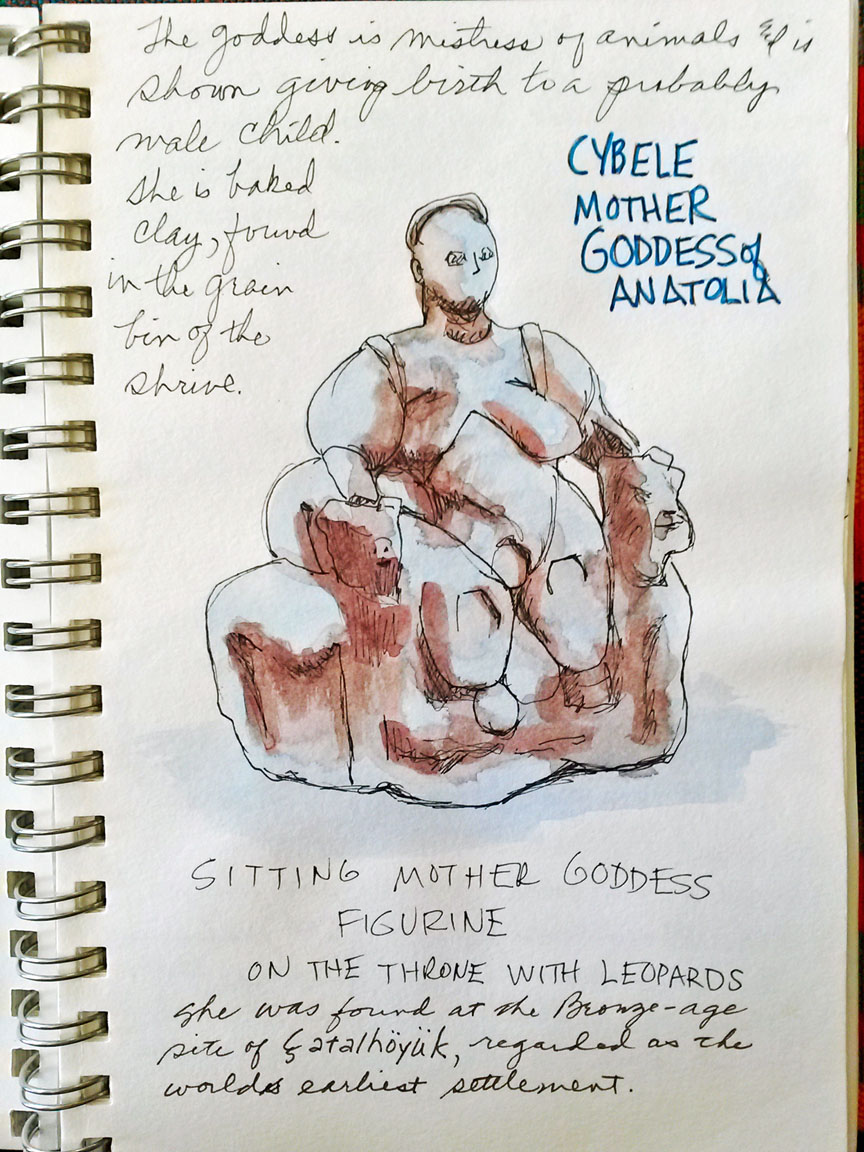 The goddess is mistress of animals & is
shown giving birth to a probably
male child.
She is baked
clay, found
in the grain
bin of the
shrine.
CYBELE
MOTHER
GODDESS of
ANATOLIA
SITTING MOTHER GODDESS
FIGURINE
ON THE THRONE WITH LEOPARDS
She was found at the Bronze-age
site of Çatalhöyük, regarded as the
worlds earliest settlement.